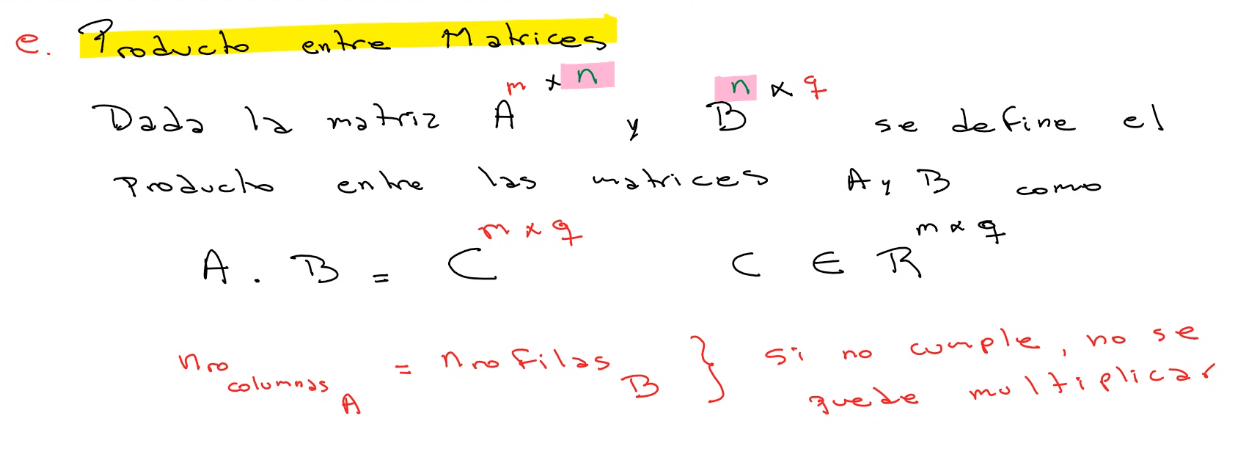 e. Producto entre Matrices
Dada la matriz A^{m x n} y B^{n x q} se define el
Producto entre las matrices A y B como
A . B = C^{m x q} C ∈ R^{m x q}
Nro_{columnas_A} = Nro Filas_B } Si no cumple, no se
puede multiplicar